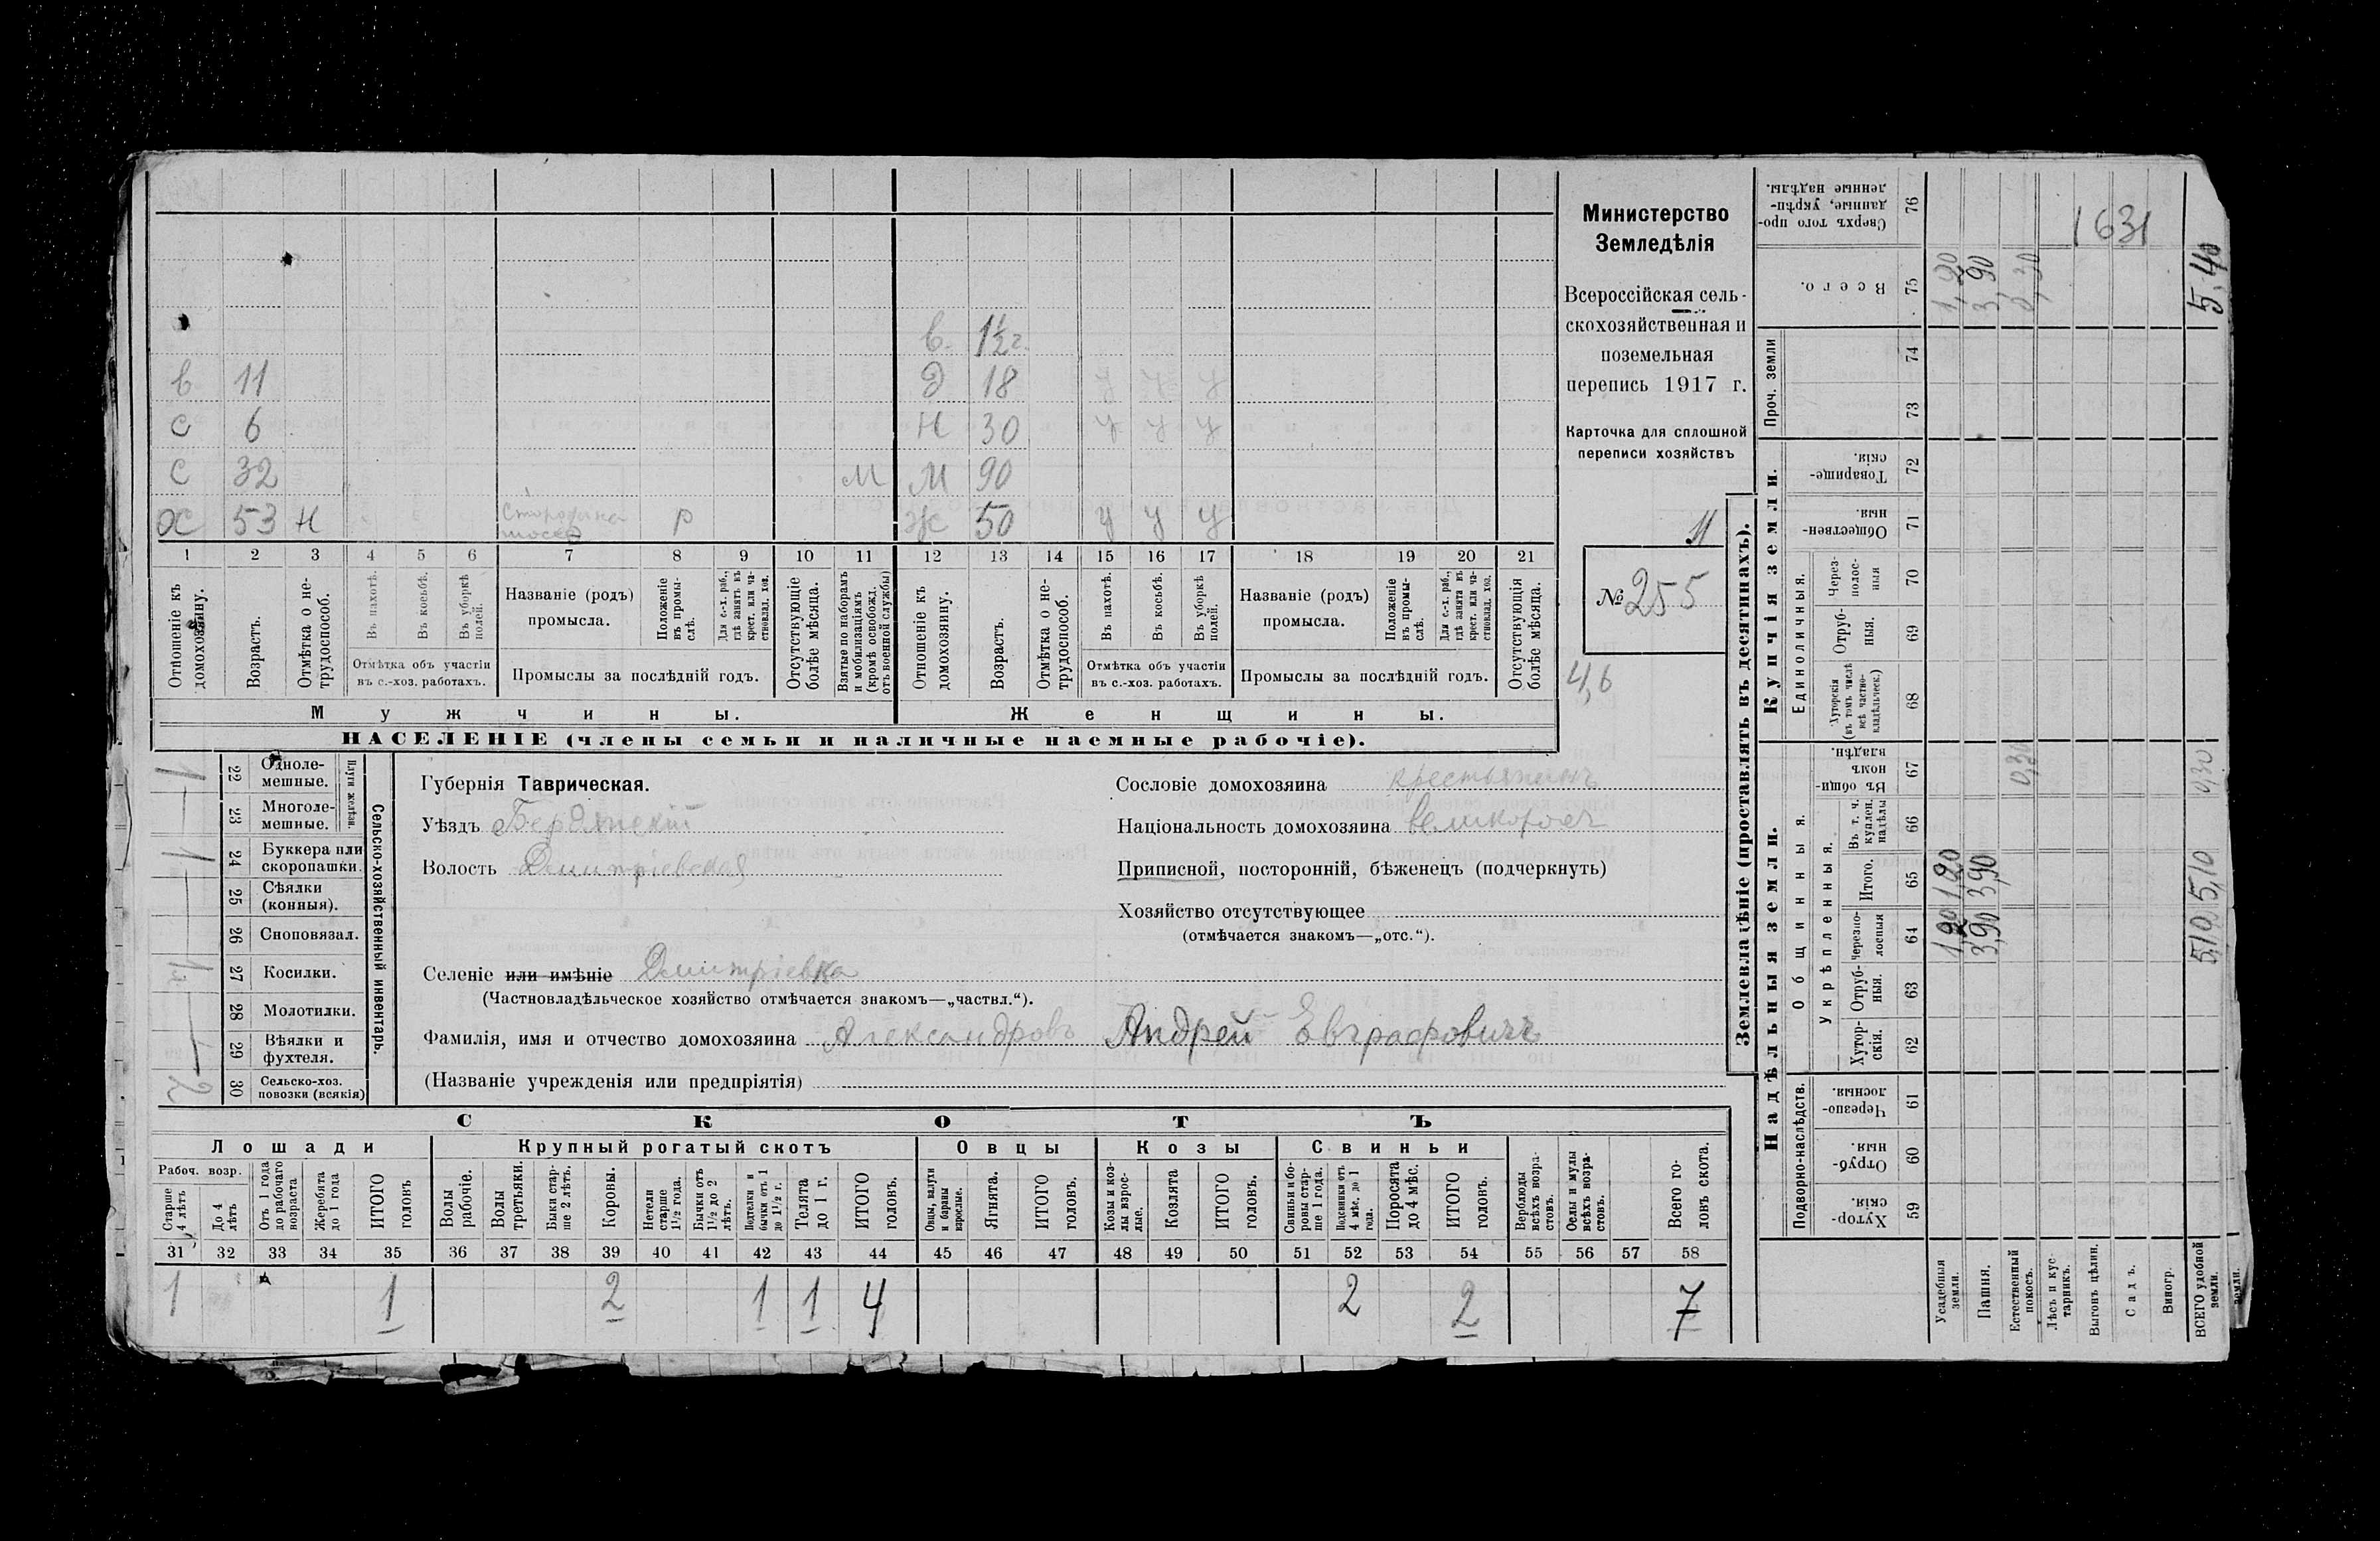 в. 1½ г.
в 11 д 18 у у у
с 6 н 30 у у у
с 32 м м 90
х 53 н р ж 50 у у у
1 2 3 4 5 6 7 8 9 10 11 12 13 14 15 16 17 18 19 20 21
Отношеніе къ домохозяину.
Возрастъ.
Отмѣтка о не-
трудоспособ.
Въ пахотѣ.
Въ косьбѣ.
Въ уборкѣ
полей.
Отмѣтка объ участіи
въ с.-хоз. работахъ.
Названіе (родъ)
промысла.
Положеніе
въ промы-
слѣ.
Для с.-х. раб.,
гдѣ занятъ въ
крест. или ча-
стновлад. хоз.
Промыслы за послѣдній годъ.
Отсутствующіе
болѣе мѣсяца.
Взятые по наборамъ
и мобилизаціямъ
(кромѣ освобожд.
отъ военной службы)
Отношеніе къ
домохозяину.
Возрастъ.
Отмѣтка о не-
трудоспособ.
Въ пахотѣ.
Въ косьбѣ.
Въ уборкѣ
полей.
Отмѣтка объ участіи
въ с.-хоз. работахъ.
Названіе (родъ)
промысла.
Положеніе
въ промы-
слѣ.
Для с.-х. раб.,
гдѣ занята въ
крест. или ча-
стновлад. хоз.
Промыслы за послѣдній годъ.
Отсутствующія
болѣе мѣсяца.
Мужчины. Женщины.
НАСЕЛЕНІЕ (члены семьи и наличные наемные рабочіе).
Министерство
Земледѣлія
Всероссійская сель-
скохозяйственная и
поземельная
перепись 1917 г.
Карточка для сплошной
переписи хозяйствъ
11
№ 255
4,6
Сельско-хозяйственный инвентарь.
Плуги желѣзн.
22 Однолe-
мешные.
1
23 Многоле-
мешные.
—
24 Буккера или
скоропашки.
1
25 Сѣялки
(конныя).
—
26 Сноповязал.
—
27 Косилки.
28 Молотилки.
—
29 Вѣялки и
фухтеля.
30 Сельско-хоз.
повозки (всякія)
2
Губернія Таврическая.
Уѣздъ Бердянскій
Волость Дмитріевская
Сословіе домохозяина крестьянинъ
Національность домохозяина великороссъ
Приписной, посторонній, бѣженецъ (подчеркнуть)
Хозяйство отсутствующее
(отмѣчается знакомъ—„отс.“).
Селеніе или имѣніе Дмитріевка
(Частновладѣльческое хозяйство отмѣчается знакомъ—„частвл.“).
Фамилія, имя и отчество домохозяина Александровъ Андрей Евграфовичъ
(Названіе учрежденія или предпріятія)
СКОТЪ
Лошади Крупный рогатый скотъ Овцы Козы Свиньи
Рабоч. возр.
Старше
4 лѣтъ
До 4
лѣтъ
Отъ 1 года
до рабочаго
возраста
Жеребята
до 1 года
ИТОГО
головъ
Волы
рабочіе.
Волы
третьяки.
Быки стар-
ше 2 лѣтъ.
Коровы.
Нетели
старше
1½ года.
Бычки отъ
1½ до 2
лѣтъ.
Подтелки и
бычки отъ 1
до 1½ г.
Телята
до 1 г.
ИТОГО
головъ.
Овцы, валухи
и бараны
взрослые.
Ягнята.
ИТОГО
головъ.
Козы и коз-
лы взрос-
лые.
Козлята
ИТОГО
головъ.
Свиньи и бо-
ровы стар-
ше 1 года.
Подсвинки отъ
4 мѣс. до 1
года.
Поросята
до 4 мѣс.
ИТОГО
головъ.
Верблюды
всѣхъ возра-
стовъ.
Ослы и мулы
всѣхъ возра-
стовъ.
Всего го-
ловъ скота.
31 32 33 34 35 36 37 38 39 40 41 42 43 44 45 46 47 48 49 50 51 52 53 54 55 56 57 58
1 1 2 1 1 4 2 2 7
Землевладѣніе (проставлять въ десятинахъ).
Надѣльныя земли. Купчія земли.
Подворно-наслѣдств.
Общинныя.
Укрѣпленныя.
Единоличныя.
Проч. земли
Хутор-
скія.
59
Отруб-
ныя.
60
Черезпо-
лосныя.
61
Хутор-
скія.
62
Отруб-
ныя.
63
Черезпо-
лосныя
64
Итого.
65
Въ т. ч.
куплен.
надѣлы
66
Въ общин-
номъ
владѣн.
67
Хуторскія
(въ томъ числѣ
всѣ частно-
владѣльческ.)
68
Отруб-
ныя.
69
Через-
полос-
ныя
70
Обществен-
ныя.
71
Товарище-
скія.
72
73
74
Всего.
75
Сверхъ того про-
данные, укрѣп-
ленные надѣлы.
76
Усадебныя
земли.
1,20 1,20 1,20
Пашня.
3,90 3,90 3,90
Естественный
покосъ.
0,30 0,30
Лѣсъ и кус-
тарникъ.
Выгонъ цѣлин.
Садъ.
Виногр.
ВСЕГО удобной
земли.
5,10 5,10 0,30 5,40
земли.
1631